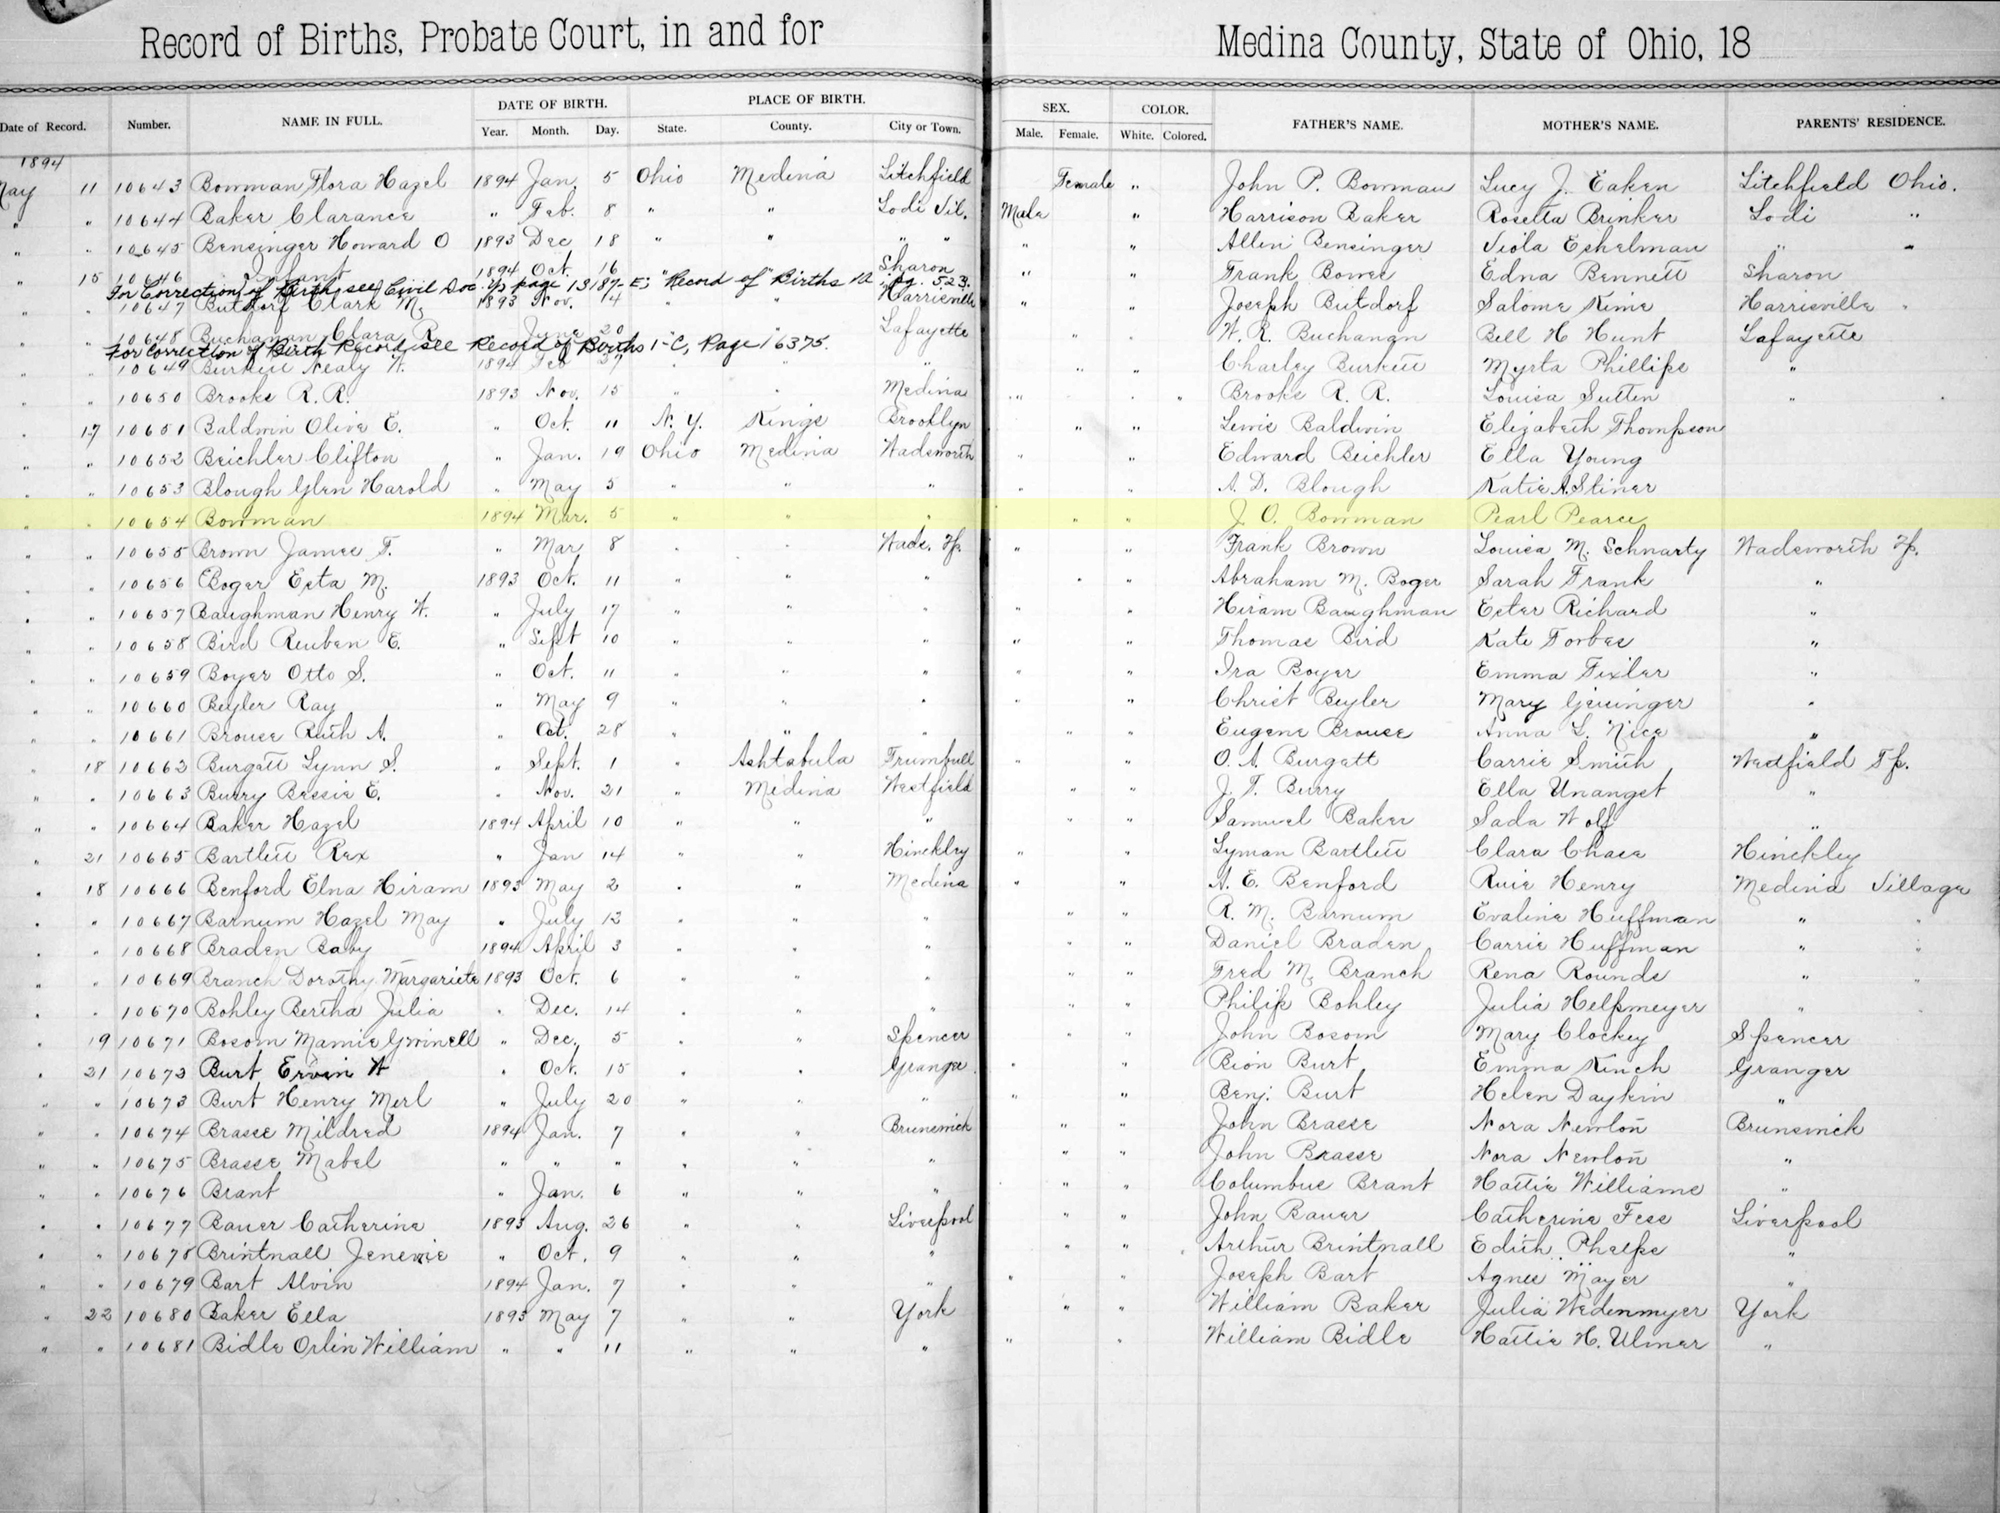 Record of Births, Probate Court, in and for Medina County, State of Ohio, 18
Date of Record. Number. NAME IN FULL. DATE OF BIRTH. PLACE OF BIRTH. SEX. COLOR. FATHER'S NAME. MOTHER'S NAME. PARENTS' RESIDENCE.
Year. Month. Day. State. County. City or Town. Male. Female. White. Colored.
1894
May 11 10643 Bowman Flora Hazel 1894 Jan. 5 Ohio Medina Litchfield Female " John P. Bowman Lucy J. Eaken Litchfield Ohio.
" " 10644 Baker Clarance " Feb. 8 " " Lodi Vil. Male " Harrison Baker Rosetta Brinker Lodi "
" " 10645 Bensinger Howard O 1893 Dec 18 " " " " " " Allen Bensinger Viola Eshelman " "
" 15 10646 Infant 1894 Oct. 16 Sharon " " Frank Bowee Edna Bennett Sharon
For Correction of Birth, see Civil Doc. page 13187-E; Record of Births pg. 523.
" " 10647 Butdorf Clark M. 1893 Nov. 14 " " Harrisville " " Joseph Butdorf Salome Kime Harrisville
" " 10648 Buchanan Clara R. " June 20 Lafayette " " W. R. Buchanan Bell H Hunt Lafayette
For Correction of Birth Record, see Record of Births 1-C, Page 16375.
" " 10649 Burkett Nealy W. 1894 Feb 27 " " " " " Charley Burkett Myrta Phillips "
" " 10650 Brooks R. R. 1893 Nov. 15 " " Medina " " Brooks R. R. Louisa Sutten "
" 17 10651 Baldwin Olive E. " Oct. 11 N. Y. Kings Brooklyn " " Lewis Baldwin Elizabeth Thompson
" " 10652 Beichler Clifton " Jan. 19 Ohio Medina Wadsworth " " Edward Beichler Ella Young
" " 10653 Blough Glen Harold " May 5 " " " " " A. D. Blough Katie A. Stiner
" " 10654 Bowman 1894 Mar. 5 " " " " " J. O. Bowman Pearl Pearce
" " 10655 Brown James T. " Mar 8 " " Wads. Tp. " " Frank Brown Louisa M. Schwarty Wadsworth Tp.
" " 10656 Boger Esta M. 1893 Oct. 11 " " " " " Abraham M. Boger Sarah Frank "
" " 10657 Baughman Henry W. " July 17 " " " " " Hiram Baughman Ester Richard "
" " 10658 Bird Reuben E. " Sept 10 " " " " " Thomas Bird Kate Forbes "
" " 10659 Boyer Otto S. " Oct. 11 " " " " " Ira Boyer Emma Fixler "
" " 10660 Beyler Ray " May 9 " " " " " Christ Beyler Mary Geisinger "
" " 10661 Brouse Ruth A. " Oct. 28 " " " " " Eugene Brouse Anna L. Nice "
" 18 10662 Burgatt Lynn S. " Sept. 1 " Ashtabula Trumbull " " O. A. Burgatt Carrie Smith Westfield Tp.
" " 10663 Burry Bessie E. " Nov. 21 " Medina Westfield " " J. T. Burry Ella Unangst "
" " 10664 Baker Hazel 1894 April 10 " " " " " Samuel Baker Sada Wolf "
" 21 10665 Bartlett Rex " Jan 14 " " Hinckley " " Lyman Bartlett Clara Chase Hinckley
" 18 10666 Benford Elna Hiram 1893 May 2 " " Medina " " A. E. Benford Ruie Henry Medina Village
" " 10667 Barnum Hazel May " July 13 " " " " " R. M. Barnum Evaline Huffman " "
" " 10668 Braden Baby 1894 April 3 " " " " " Daniel Braden Carrie Huffman " "
" " 10669 Branch Dorothy Margariete 1893 Oct. 6 " " " " " Fred M. Branch Rena Rounds " "
" " 10670 Bohley Bertha Julia " Dec. 14 " " " " " Philip Bohley Julia Helpmeyer " "
" 19 10671 Bosom Mamie Gwinell " Dec. 5 " " Spencer " " John Bosom Mary Clockey Spencer
" 21 10672 Burt Ervin W " Oct. 15 " " Granger " " Bion Burt Emma Kinch Granger
" " 10673 Burt Henry Merl " July 20 " " " " " Benj. Burt Helen Daykin "
" " 10674 Brasse Mildred 1894 Jan. 7 " " Brunswick " " John Brasse Nora Newton Brunswick
" " 10675 Brasse Mabel " " " " " " " " John Brasse Nora Newton "
" " 10676 Brant " Jan. 6 " " " " " Columbus Brant Hattie Williams "
" " 10677 Bauer Catherine 1893 Aug. 26 " " Liverpool " " John Bauer Catherine Fess Liverpool
" " 10678 Brintnall Jenevie " Oct. 9 " " " " " Arthur Brintnall Edith Phelps "
" " 10679 Bart Alvin 1894 Jan. 7 " " " " " Joseph Bart Agnes Mayer "
" 22 10680 Baker Ella 1893 May 7 " " York " " William Baker Julia Wedenmyer York
" " 10681 Bidle Orlin William " " 11 " " " " " William Bidle Hattie H. Ulmer "